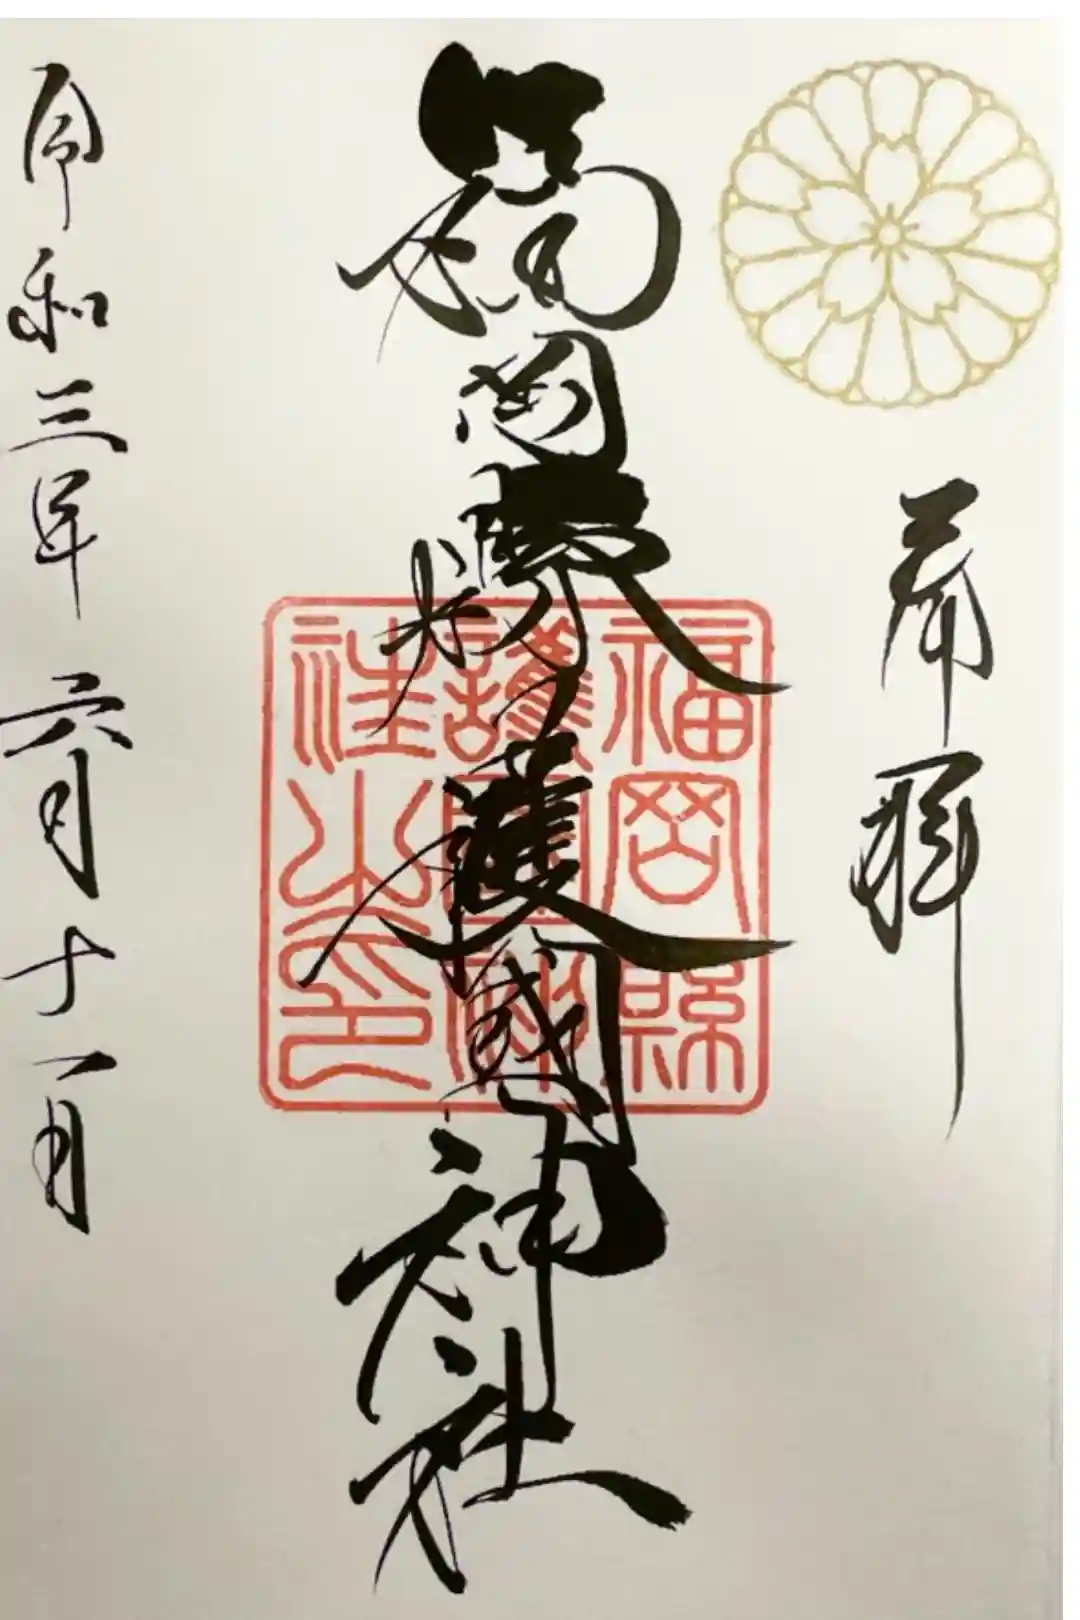 奉拝
福岡縣護國神社
福岡縣
護國神
社之印
令和三年六月十一日